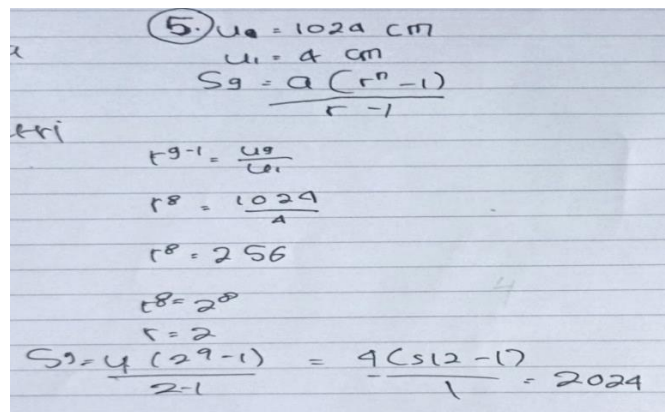 5. U9 = 1024 cm
U1 = 4 cm
S9 = a (r^n - 1) / r - 1
tri
r^9-1 = U9 / U1
r^8 = 1024 / 4
r^8 = 256
r^8 = 2^8
r = 2
S9 = 4 (2^9 - 1) / 2-1 = 4 (512 - 1) / 1 = 2024